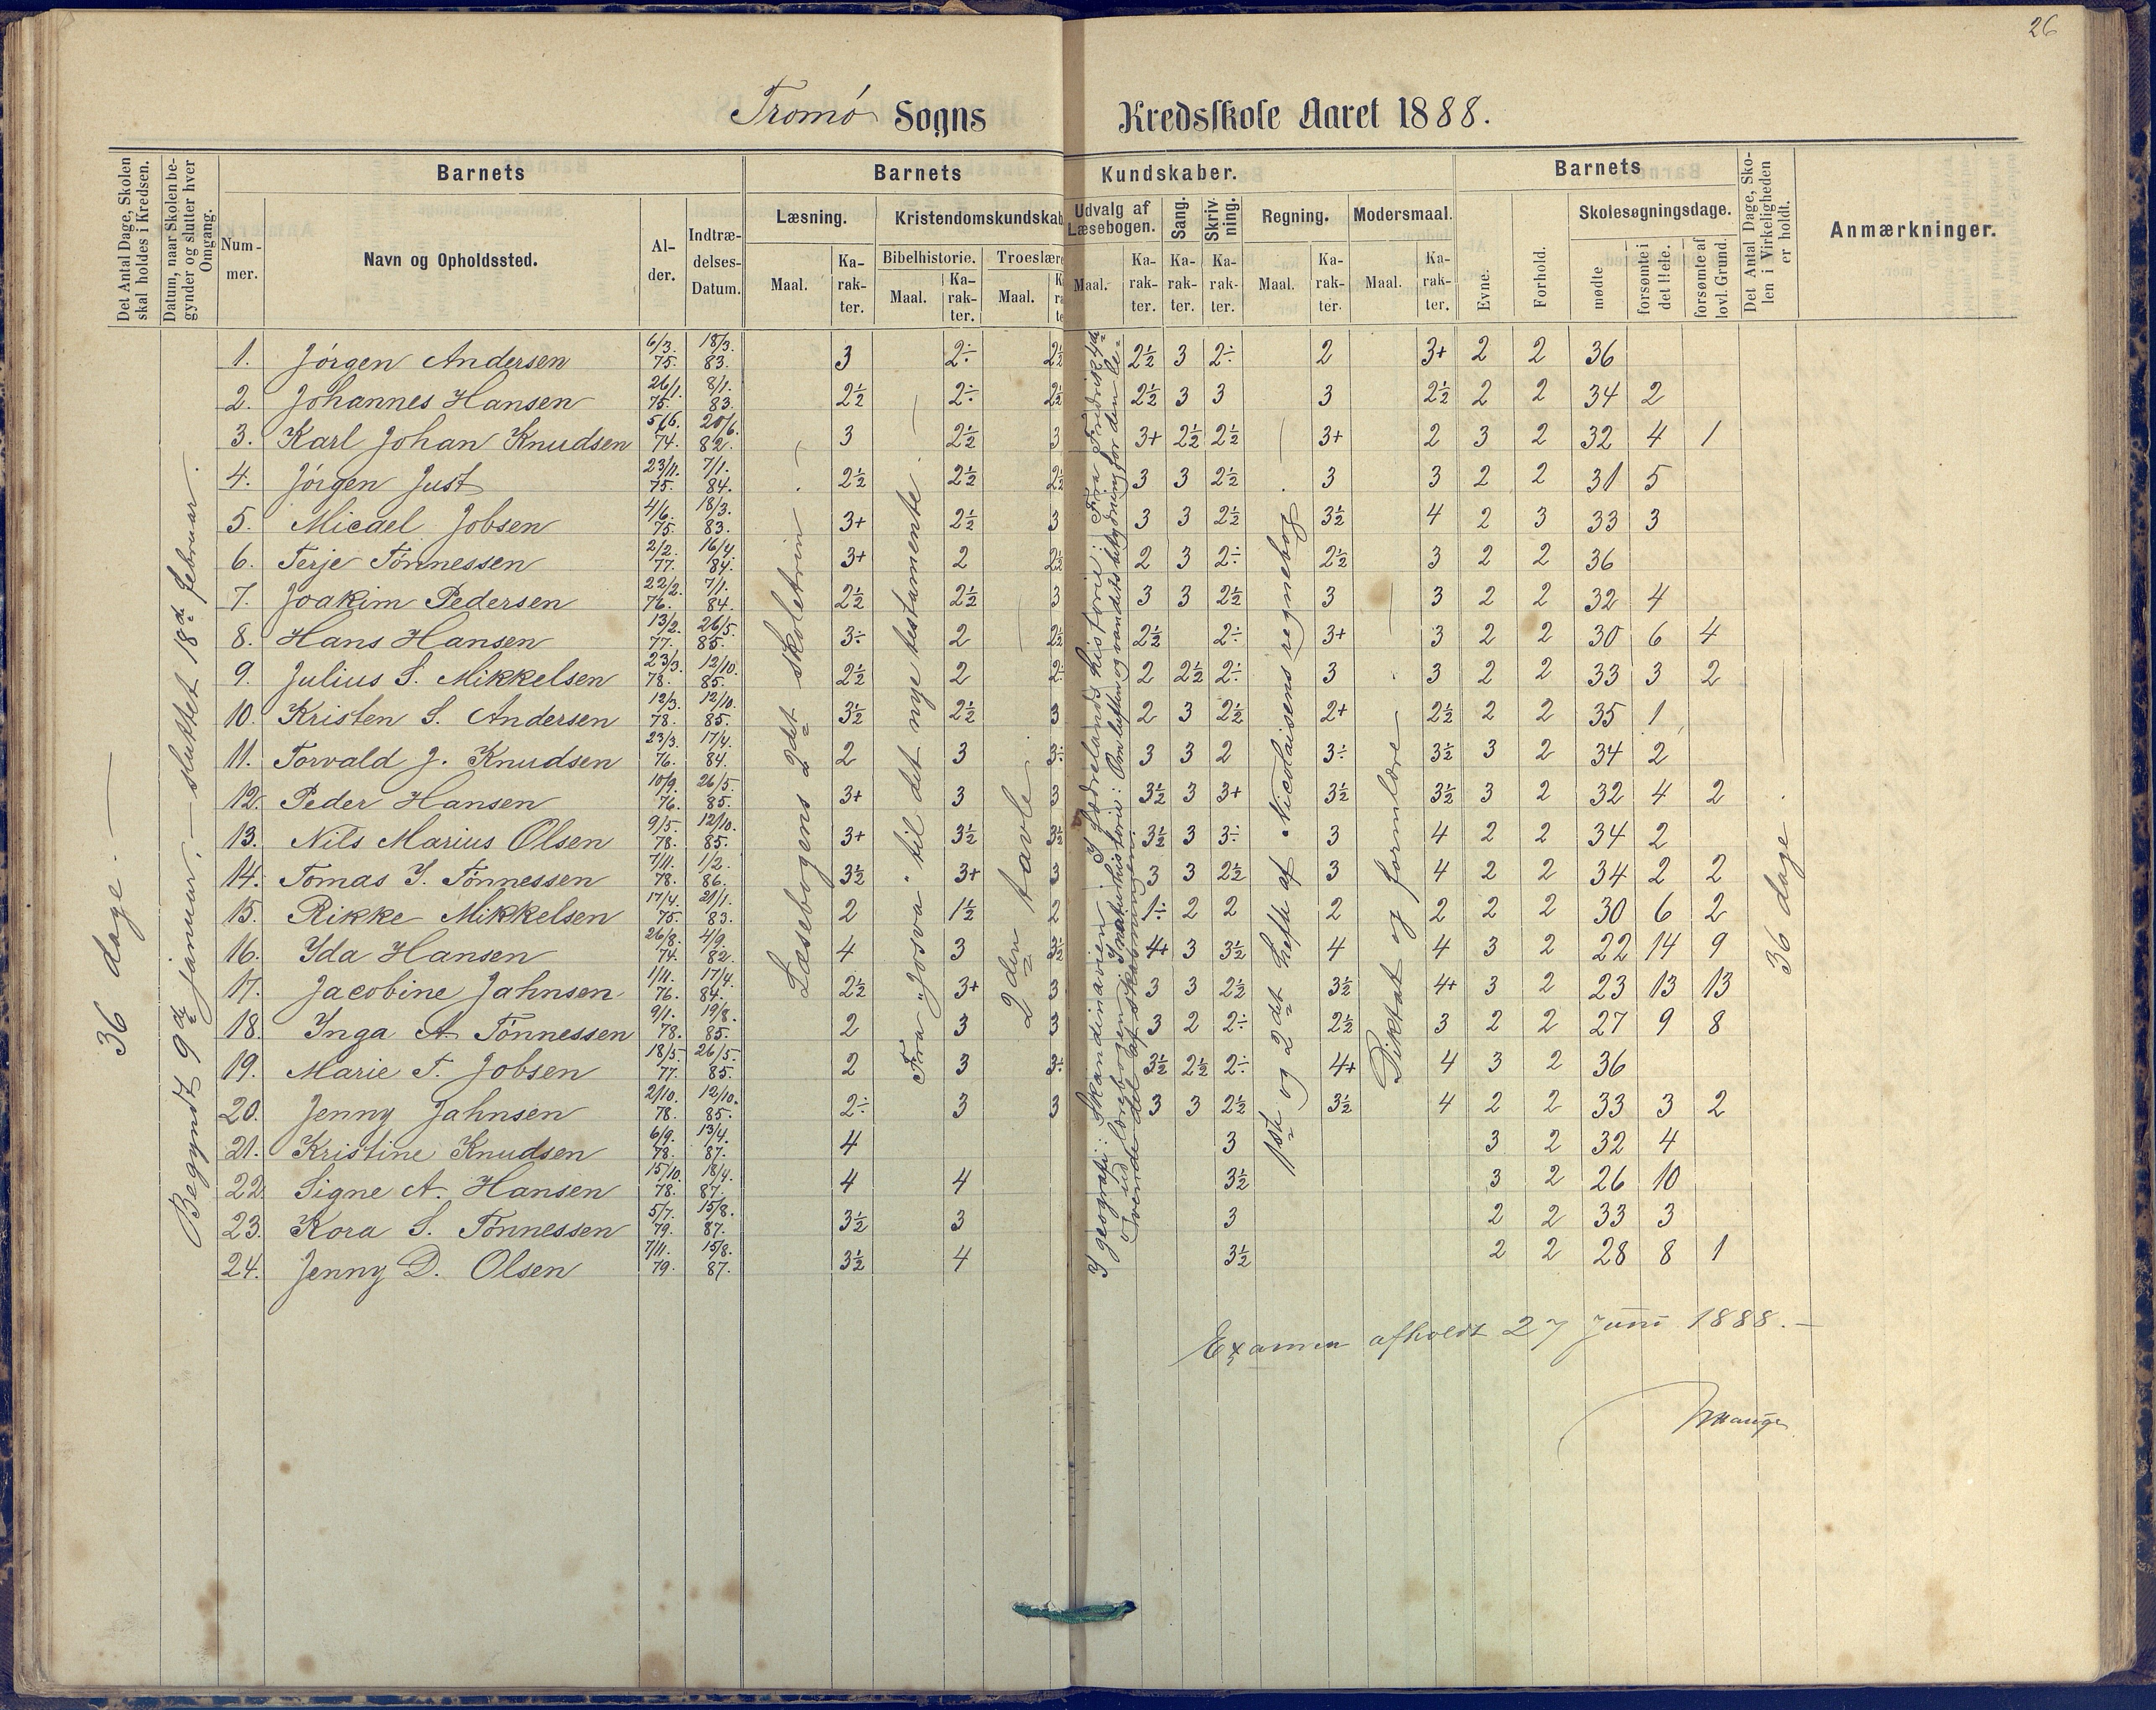 26
Tromø Sogns Kredsskole Aaret 1888.
Det Antal Dage, Skolen skal holdes i Kredsen.
Datum, naar Skolen begynder og slutter hver Omgang.
Barnets
Num-mer.
Navn og Opholdssted.
Al-der.
Indtræ-delses-Datum.
Barnets Kundskaber.
Læsning.
Maal.
Ka-rak-ter.
Kristendomskundskab
Bibelhistorie.
Maal.
Ka-rak-ter.
Troeslære
Maal.
Udvalg af Læsebogen.
Maal.
Ka-rak-ter.
Sang.
Ka-rak-ter.
Skriv-ning.
Ka-rak-ter.
Regning.
Maal.
Ka-rak-ter.
Modersmaal.
Maal.
Ka-rak-ter.
Barnets
Evne.
Forhold.
Skolesøgningsdage.
mødte
forsømte i det Hele.
forsømte af lovl. Grund.
Det Antal Dage, Skolen i Virkeligheden er holdt.
Anmærkninger.
36 dage. —
Begyndt 9de januar, — sluttet 18de februar.
Læsebogens 2det skoletrin
Fra "Josva" til det nye testamente.
2den tavle.
I geografi: Skandinavien. I fædrelandshistorie: Fra Fredrik 4de
ud. I naturhistorie: Om luften og vandets betydning for den le-
vende del af skabningen.
1ste og 2det hefte af Nicolaisens regnebog
Diktat og formlære
36 dage. —
1. Jørgen Andersen 6/3. 75. 18/3. 83. 3 2÷ 2½ 2½ 3 2÷ 2 3+ 2 2 36
2. Johannes Hansen 26/1. 75. 8/1. 83. 2½ 2÷ 2½ 2½ 3 3 3 2½ 2 2 34 2
3. Karl Johan Knudsen 5/6. 74. 20/6. 82. 3 2½ 3 3+ 2½ 2½ 3+ 2 3 2 32 4 1
4. Jørgen Just 23/11. 75. 7/1. 84. 2½ 2½ 2½ 3 3 2½ 3 3 2 2 31 5
5. Micael Jobsen 4/6. 75. 18/3. 83. 3+ 2½ 3 3 3 2½ 3½ 4 2 3 33 3
6. Terje Tønnessen 2/2. 77. 16/4. 84. 3+ 2 2½ 2 3 2÷ 2½ 3 2 2 36
7. Joakim Pedersen 22/2. 76. 7/1. 84. 2½ 2½ 3 3 3 2½ 3 3 2 2 32 4
8. Hans Hansen 13/2. 77. 26/5. 85. 3÷ 2 2½ 2½ 2÷ 3+ 3 2 2 30 6 4
9. Julius S. Mikkelsen 23/3. 78. 12/10. 85. 2½ 2 2÷ 2 2½ 2÷ 3 3 2 2 33 3 2
10. Kristen S. Andersen 12/3. 78. 12/10. 85. 3½ 2½ 3 2 3 2½ 2+ 2½ 2 2 35 1
11. Torvald J. Knudsen 23/3. 76. 17/4. 84. 2 3 3÷ 3 3 2 3÷ 3½ 3 2 34 2
12. Peder Hansen 10/9. 76. 26/5. 85. 3+ 3 3 3½ 3 3+ 3½ 3½ 3 2 32 4 2
13. Nils Marius Olsen 9/5. 78. 12/10. 85. 3+ 3½ 3½ 3½ 3 3÷ 3 4 2 2 34 2
14. Tomas I. Tønnessen 7/11. 78. 1/2. 86. 3½ 3+ 3 3 3 2½ 3 4 2 2 34 2 2
15. Rikke Mikkelsen 17/4. 75. 21/1. 83. 2 1½ 2 1÷ 2 2 2 2 2 2 30 6 2
16. Ida Hansen 26/8. 74. 4/9. 82. 4 3 3½ 4+ 3 3½ 4 4 3 2 22 14 9
17. Jacobine Jahnsen 1/11. 76. 17/4. 84. 2½ 3+ 3 3 3 2½ 3½ 4+ 3 2 23 13 13
18. Inga A. Tønnessen 9/1. 78. 19/8. 85. 2 3 3 3 2 2÷ 2½ 3 2 2 27 9 8
19. Marie T. Jobsen 18/5. 77. 26/5. 85. 2 3 3÷ 3½ 2½ 2÷ 4+ 4 3 2 36
20. Jenny Jahnsen 2/10. 78. 12/10. 85. 2÷ 3 3 3 3 2½ 3½ 4 2 2 33 3 2
21. Kristine Knudsen 6/9. 78. 13/4. 87. 4 3 3 2 32 4
22. Signe A. Hansen 15/10. 78. 18/4. 87. 4 4 3½ 3 2 26 10
23. Kora S. Tønnessen 5/7. 79. 15/8. 87. 3½ 3 3 2 2 33 3
24. Jenny D. Olsen 7/11. 79. 15/8. 87. 3½ 4 3½ 2 2 28 8 1
Examen afholdt 27 Juni 1888. —
Hauge